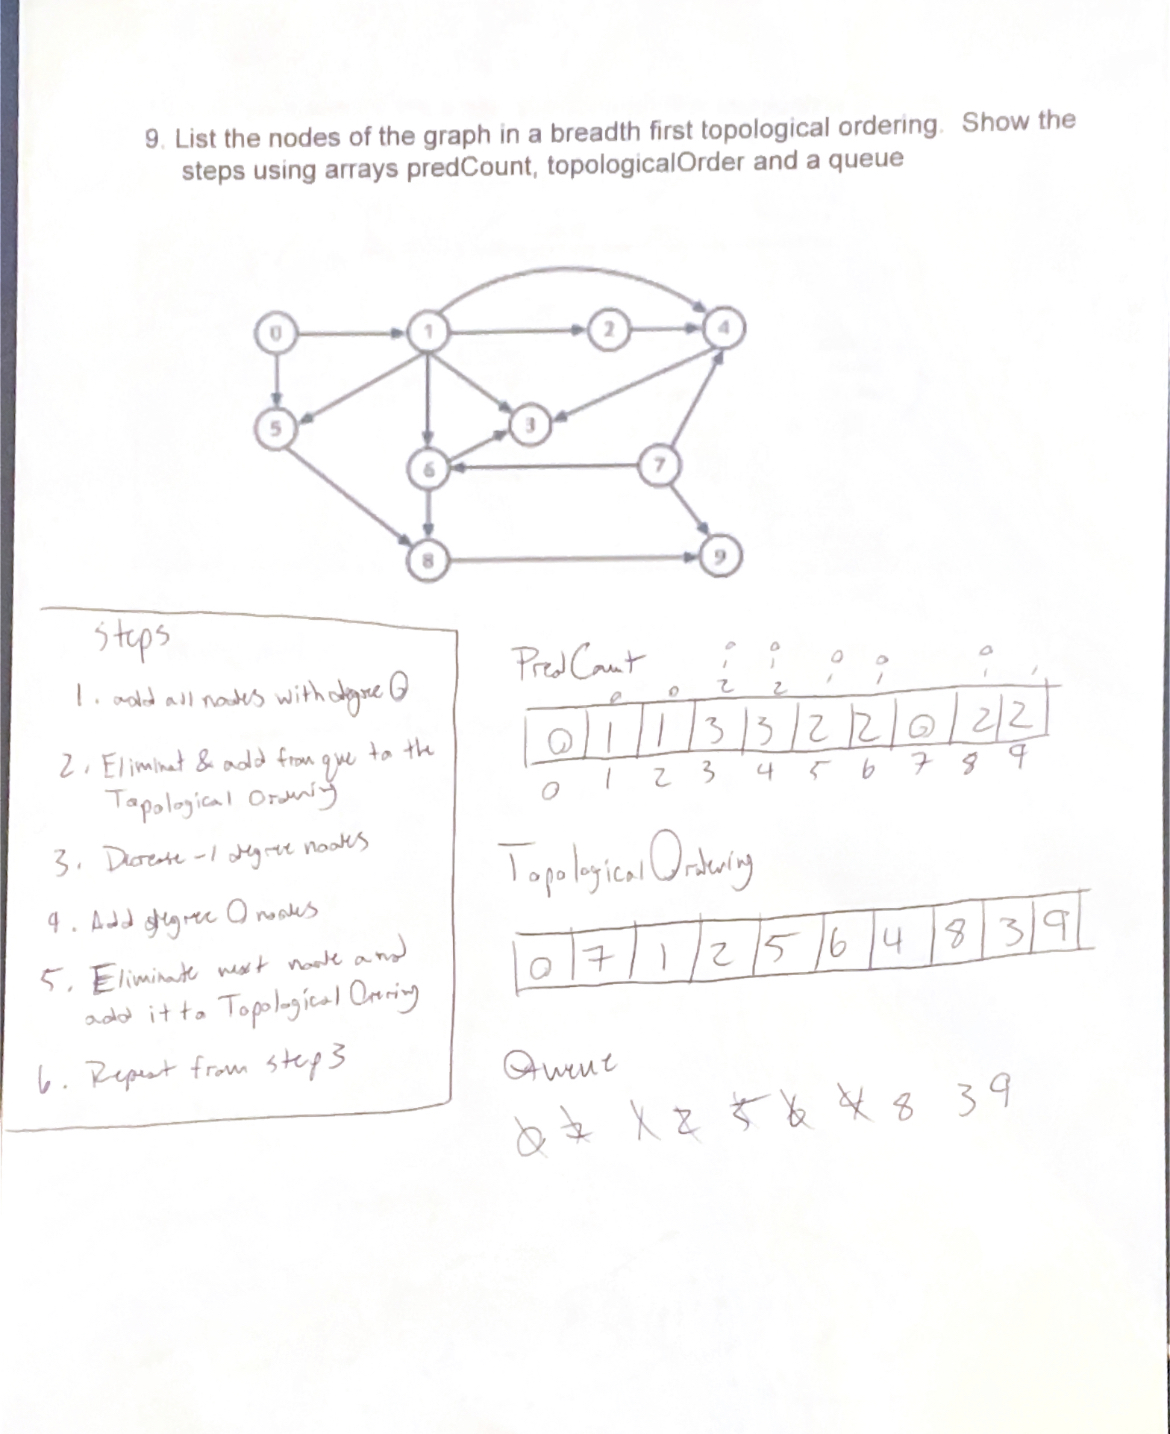 9. List the nodes of the graph in a breadth first topological ordering. Show the
steps using arrays predCount, topologicalOrder and a queue
0 1 2 4
5 3
6 7
8 9
Steps
1. add all nodes with degree 0
2. Eliminat & add from que to the
Topological Ordering
3. Decrease -1 degree nodes
4. Add degree 0 nodes
5. Eliminate next node and
add it to Topological Orering
6. Repeat from step 3
Pred Count
0 0 0 0 0
1 1 1 1 1 1
0 0 2 2
0 1 1 3 3 2 2 0 2 2
0 1 2 3 4 5 6 7 8 9
Topological Ordering
0 7 1 2 5 6 4 8 3 9
Queue
0 7 1 2 5 6 4 8 3 9